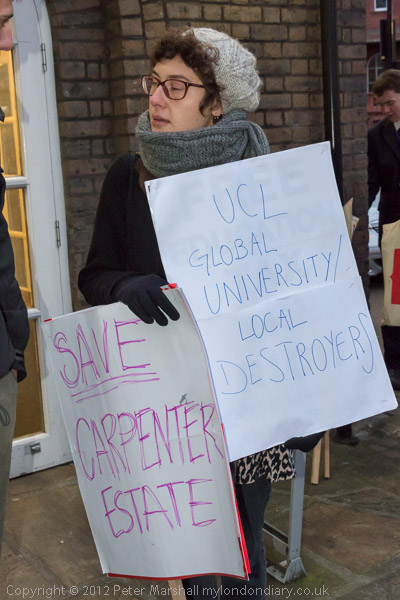 UCL
GLOBAL
UNIVERSITY/
LOCAL
DESTROYERS
SAVE
CARPENTER
ESTATE
Copyright © 2012 Peter Marshall mylondondiary.co.uk